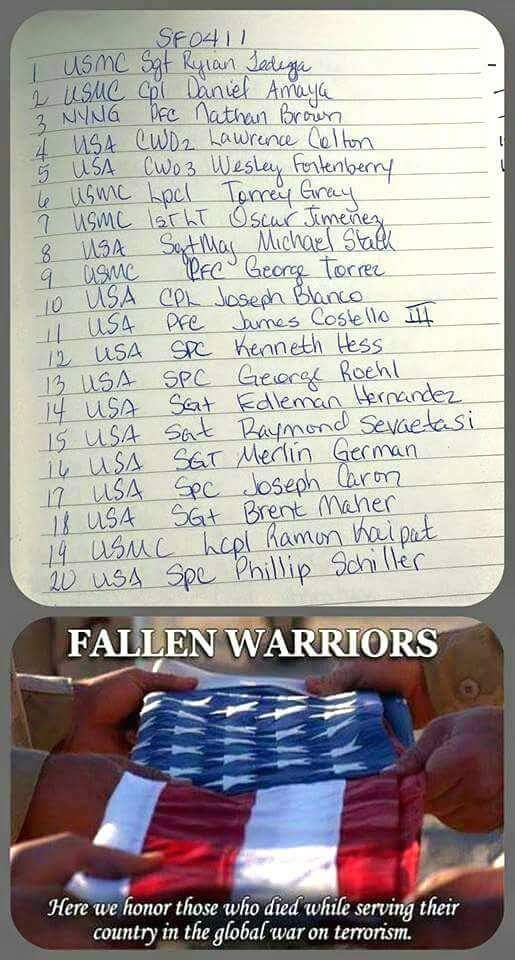 SF0411
1 USMC Sgt Ryian
2 USMC Cpl Daniel Amaya
3 NYNG PFC Nathan Brown
4 USA CWO2 Lawrence Colton
5 USA CWO3 Wesley Fortenberry
6 USMC Lpcl Torrey Gray
7 USMC 1st LT Oscar Jimenez
8 USA SgtMaj Michael Stack
9 USMC PFC George Torrez
10 USA CPL Joseph Blanco
11 USA Pfc James Costello III
12 USA SPC Kenneth Hess
13 USA SPC George Roehl
14 USA Sgt Edleman Hernandez
15 USA Sgt Raymond Sevaetasi
16 USA SGT Merlin German
17 USA Spc Joseph Caron
18 USA SGt Brent Maher
19 USMC Lcpl Ramon Kaipat
20 USA Spc Phillip Schiller
FALLEN WARRIORS
Here we honor those who died while serving their
country in the global war on terrorism.